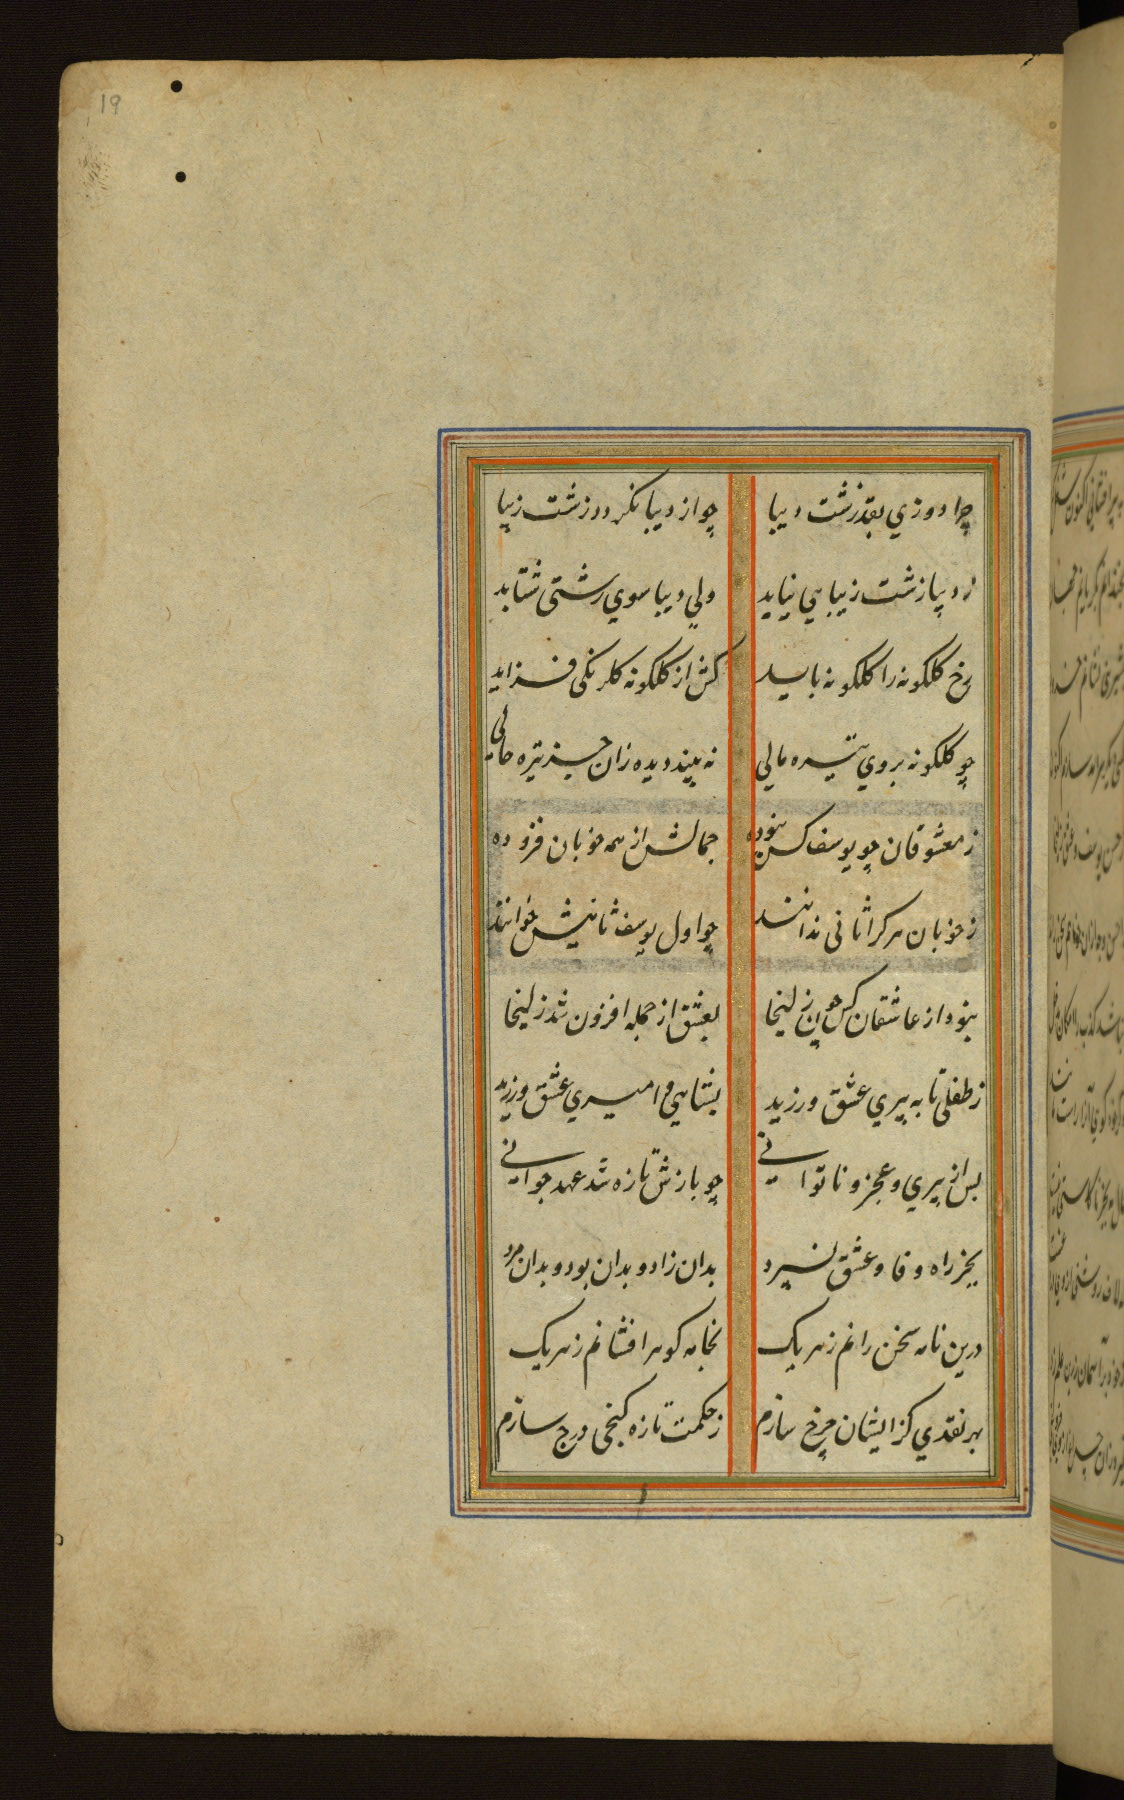 19
چرا دوزي بقد زشت ديبا چو از ديبا نكردد زشت زيبا
ز ديبا زشت زيبايي نيابد ولي ديبا سوي زشتى شتابد
رخ كلكونه را كلكونه بايد كش از كلكونه كلرنكى فزايد
چو كلكونه بروي تيره مالي نه بيند ديده زان جز تيره حالي
ز معشوقان چو يوسف كس نبوده جمالش از همه خوبان فزوده
ز خوبان هر كرا ثانى ندانند چو اول يوسف ثانيش خوانند
نبود از عاشقان كس چون زليخا بعشق از جمله افزون شد زليخا
ز طفلى تا به پيري عشق ورزيد بشاهي و اميري عشق ورزيد
پس از پيري و عجز و ناتوانى چو بازش تازه شد عهد جوانى
بجز راه وفا و عشق نسپرد بدان زاد و بدان بود و بدان مرد
درين نامه سخن رانم ز هر يك بخامه كوهر افشانم ز هر يك
بهر نقدي كز ايشان خرج سازم ز حكمت تازه كنجى درج سازم